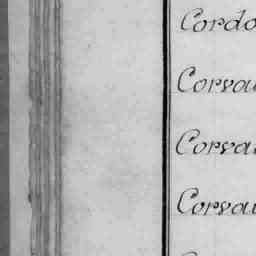 Cordo
Corvau
Corvai
Corvau